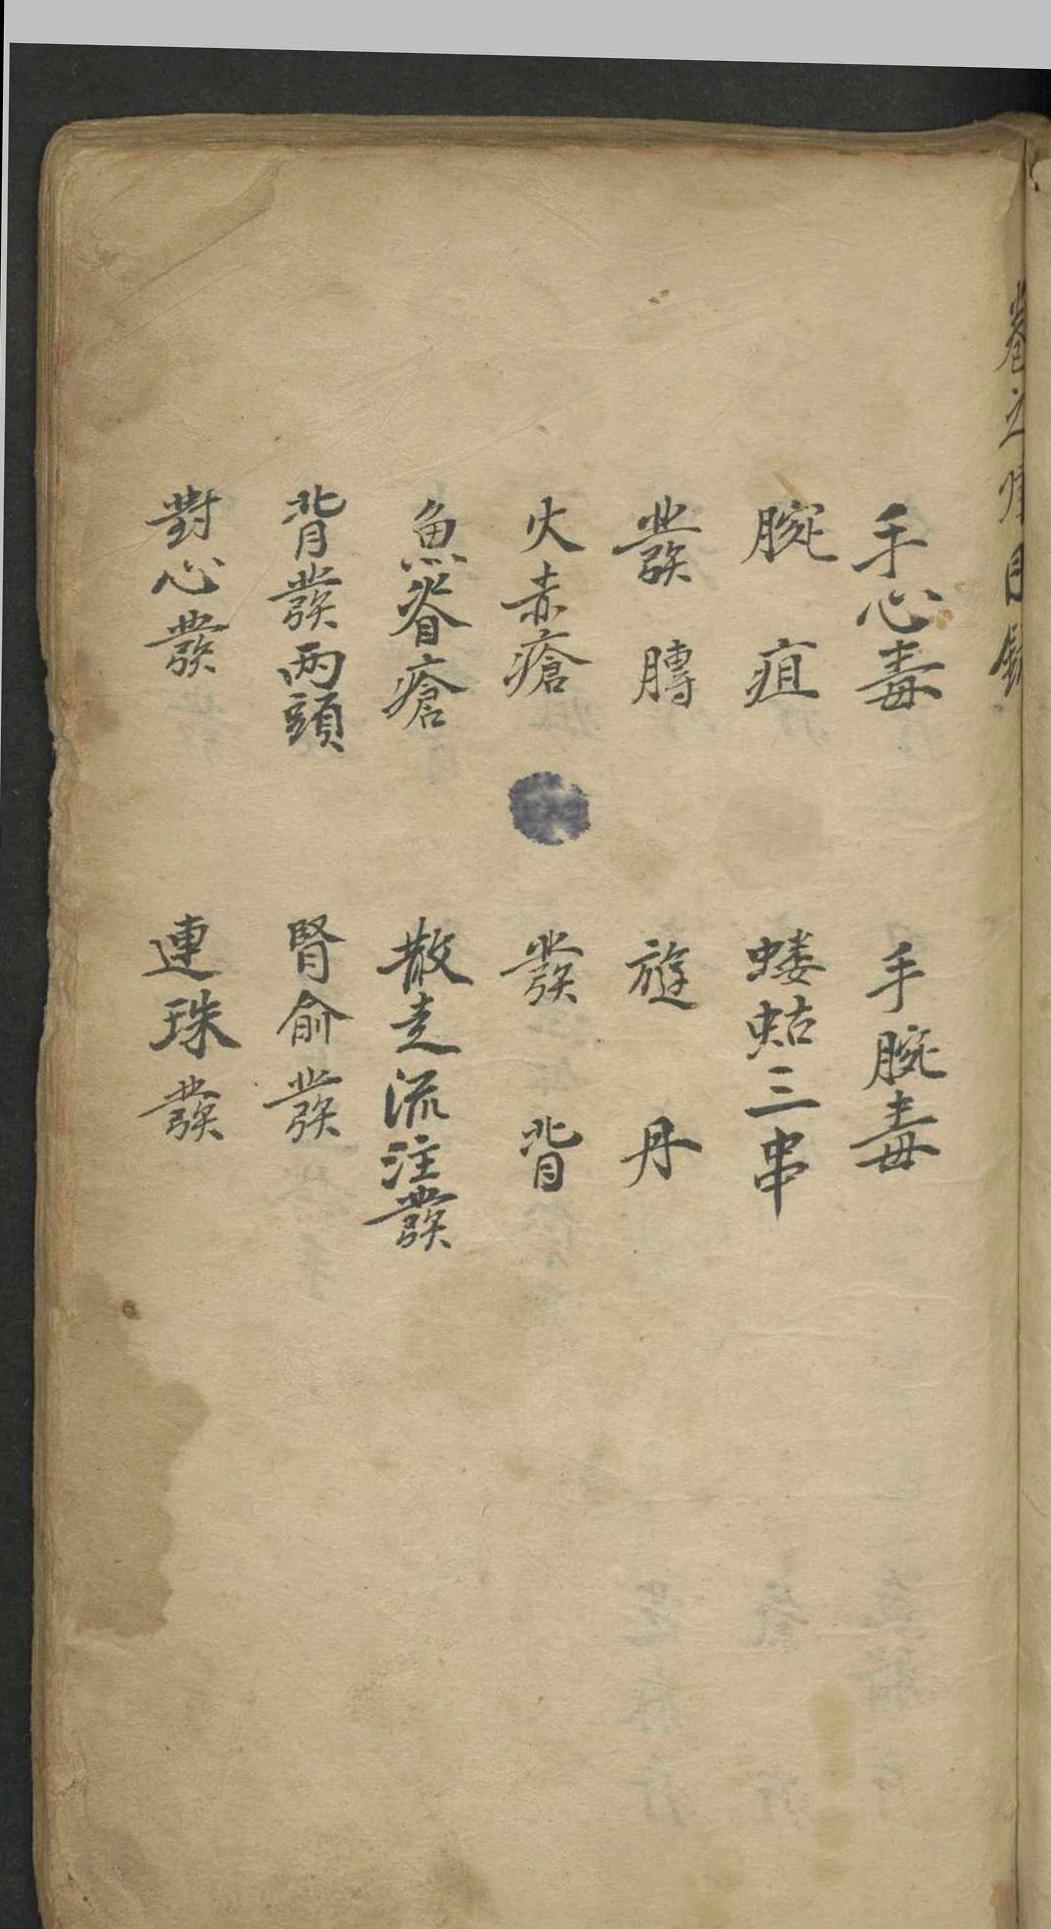 卷之目錄
手心毒　手腕毒
腕疽　蝼蛄三串
發膞　遊丹
火赤瘡　發背
魚脊瘡　散走流注發
背發两頭　腎俞發
對心發　連珠發